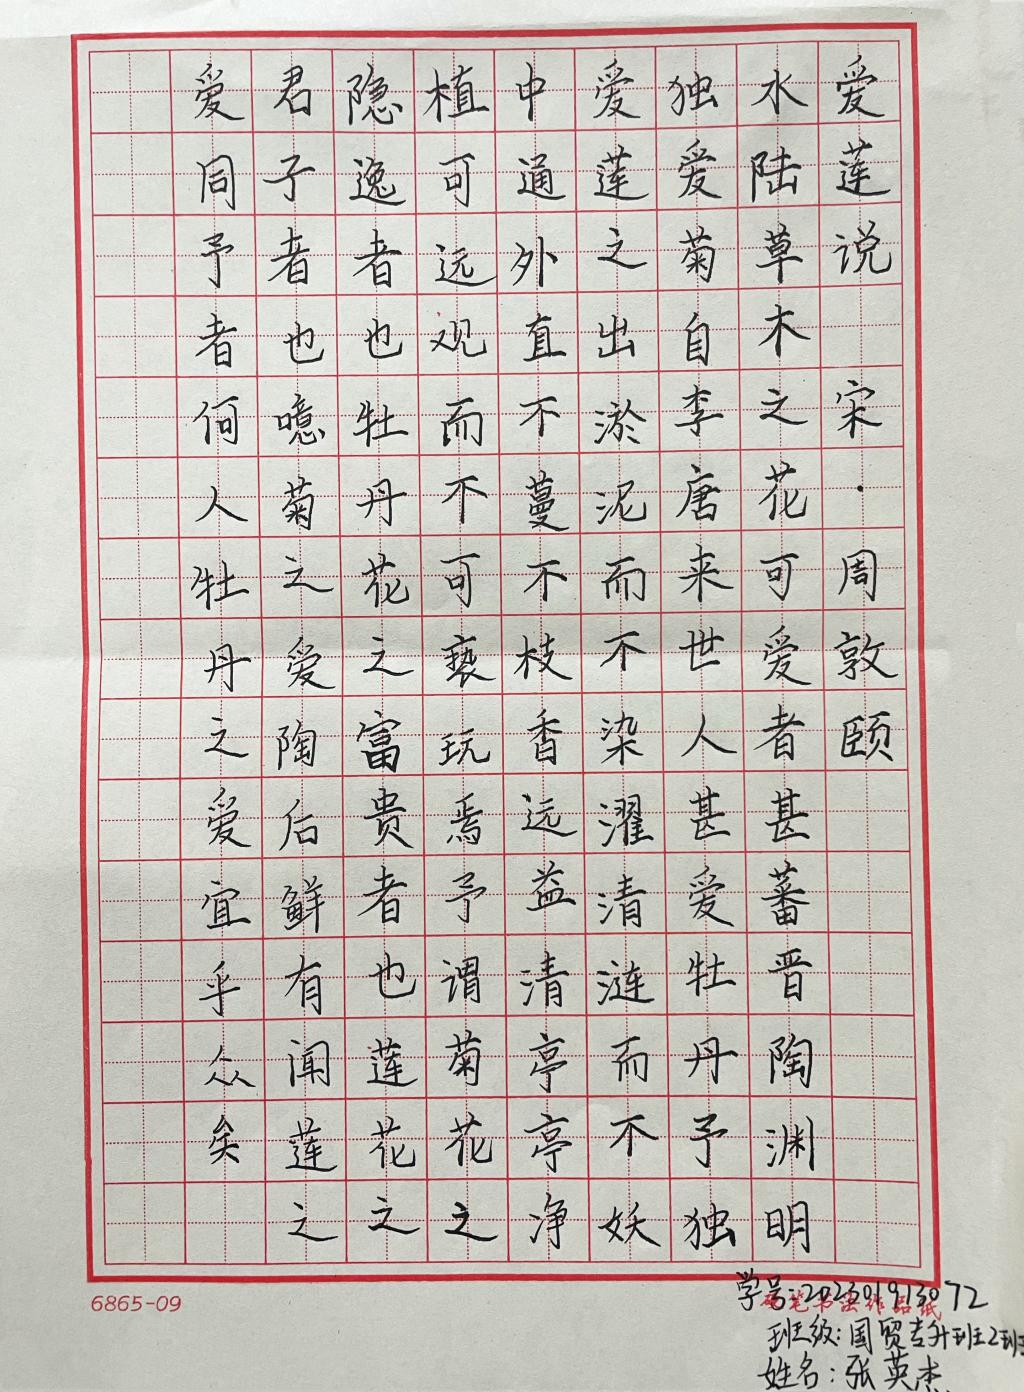 爱莲说 宋·周敦颐
水陆草木之花可爱者甚蕃晋陶渊明
独爱菊自李唐来世人甚爱牡丹予独
爱莲之出淤泥而不染濯清涟而不妖
中通外直不蔓不枝香远益清亭亭净
植可远观而不可亵玩焉予谓菊花之
隐逸者也牡丹花之富贵者也莲花之
君子者也噫菊之爱陶后鲜有闻莲之
爱同予者何人牡丹之爱宜乎众矣
6865-09
硬笔书法作品纸
学号:202301913072
班级:国贸专升班2班
姓名:张英杰